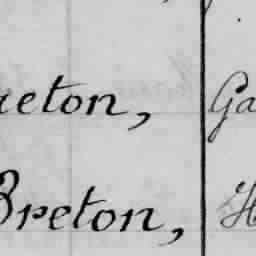 reton, Ga
Breton, H